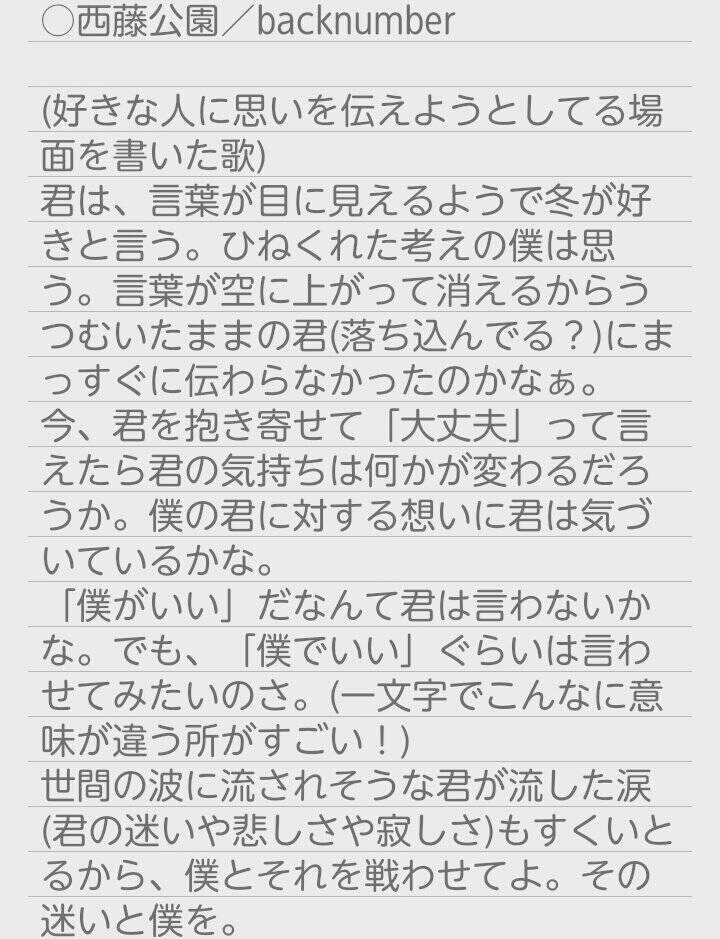 ○西藤公園／backnumber
(好きな人に思いを伝えようとしてる場
面を書いた歌)
君は、言葉が目に見えるようで冬が好
きと言う。ひねくれた考えの僕は思
う。言葉が空に上がって消えるからう
つむいたままの君(落ち込んでる？)にま
っすぐに伝わらなかったのかなぁ。
今、君を抱き寄せて「大丈夫」って言
えたら君の気持ちは何かが変わるだろ
うか。僕の君に対する想いに君は気づ
いているかな。
「僕がいい」だなんて君は言わないか
な。でも、「僕でいい」ぐらいは言わ
せてみたいのさ。(一文字でこんなに意
味が違う所がすごい！)
世間の波に流されそうな君が流した涙
(君の迷いや悲しさや寂しさ)もすくいと
るから、僕とそれを戦わせてよ。その
迷いと僕を。